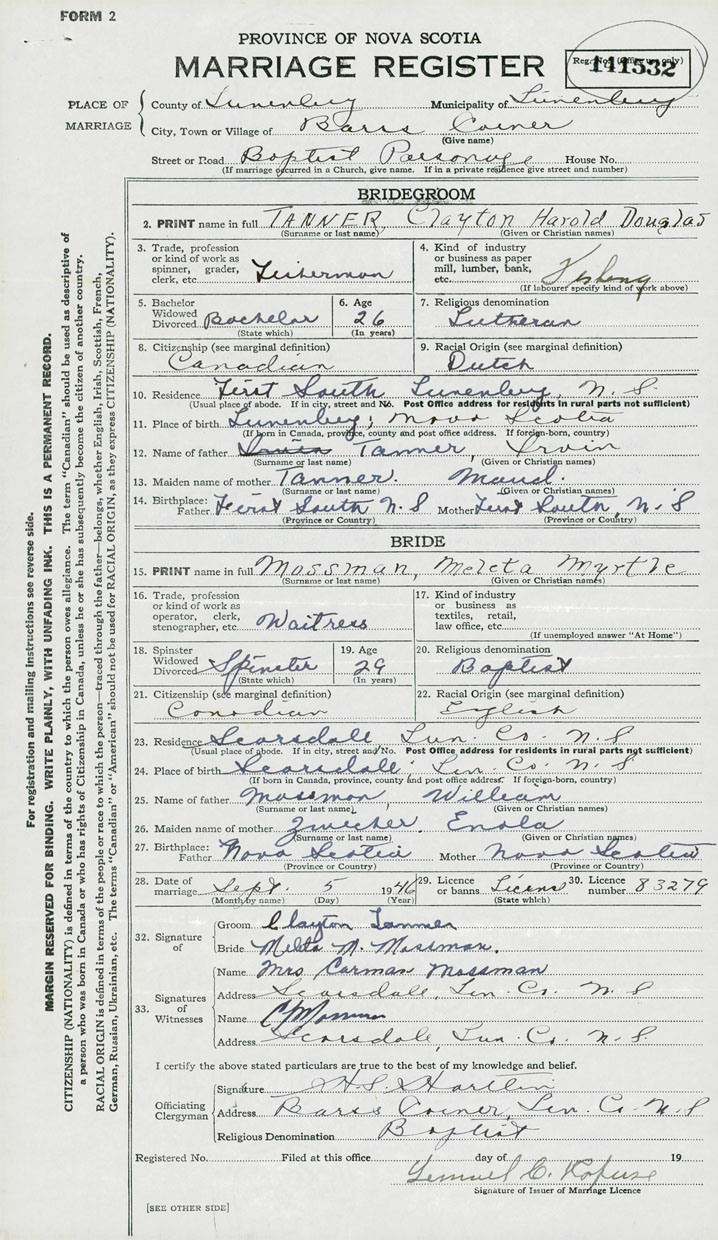 FORM 2
PROVINCE OF NOVA SCOTIA
MARRIAGE REGISTER
Reg. No. (Office use only)
141532
PLACE OF MARRIAGE
County of Lunenburg Municipality of Lunenburg
City, Town or Village of Barss Corner
(Give name)
Street or Road Baptist Parsonage House No.
(If marriage occurred in a Church, give name. If in a private residence give street and number)
BRIDEGROOM
2. PRINT name in full TANNER, Clayton Harold Douglas
(Surname or last name) (Given or Christian names)
3. Trade, profession or kind of work as spinner, grader, clerk, etc. Fisherman
4. Kind of industry or business as paper mill, lumber, bank, etc. Fishing
(If labourer specify kind of work above)
5. Bachelor Widowed Divorced Bachelor
(State which)
6. Age 26
(In years)
7. Religious denomination Lutheran
8. Citizenship (see marginal definition) Canadian
9. Racial Origin (see marginal definition) Dutch
10. Residence First South Lunenburg, N. S.
(Usual place of abode. If in city, street and No. Post Office address for residents in rural parts not sufficient)
11. Place of birth Lunenburg, Nova Scotia
(If born in Canada, province, county and post office address. If foreign-born, country)
12. Name of father Tanner, Irvin
(Surname or last name) (Given or Christian names)
13. Maiden name of mother Tanner. Maud.
(Surname or last name) (Given or Christian names)
14. Birthplace: Father First South N. S Mother First South, N. S
(Province or Country) (Province or Country)
BRIDE
15. PRINT name in full Mossman, Meleta Myrtle
(Surname or last name) (Given or Christian names)
16. Trade, profession or kind of work as operator, clerk, stenographer, etc. Waitress
17. Kind of industry or business as textiles, retail, law office, etc.
(If unemployed answer "At Home")
18. Spinster Widowed Divorced Spinster
(State which)
19. Age 29
(In years)
20. Religious denomination Baptist
21. Citizenship (see marginal definition) Canadian
22. Racial Origin (see marginal definition) English
23. Residence Scarsdale, Lun. Co. N. S.
(Usual place of abode. If in city, street and No. Post Office address for residents in rural parts not sufficient)
24. Place of birth Scarsdale, Lun. Co. N. S.
(If born in Canada, province, county and post office address. If foreign-born, country)
25. Name of father Mossman, William
(Surname or last name) (Given or Christian names)
26. Maiden name of mother Zwicker, Enola
(Surname or last name) (Given or Christian names)
27. Birthplace: Father Nova Scotia Mother Nova Scotia
(Province or Country) (Province or Country)
28. Date of marriage Sept. 5 1946
(Month by name) (Day) (Year)
29. Licence or banns Licens
(State which)
30. Licence number 83279
32. Signature of
Groom Clayton Tanner
Bride Melta M. Mossman.
33. Signatures of Witnesses
Name Mrs Carman Mossman
Address Scarsdale, Lun. Co. N. S
Name
Address Scarsdale, Lun. Co. N. S.
I certify the above stated particulars are true to the best of my knowledge and belief.
Officiating Clergyman
Signature H S Hartlin
Address Barss Corner, Lun. Co. N. S
Religious Denomination Baptist
Registered No. Filed at this office day of 19
Lemuel C. Rafuse
Signature of Issuer of Marriage Licence
[SEE OTHER SIDE]
For registration and mailing instructions see reverse side.
MARGIN RESERVED FOR BINDING. WRITE PLAINLY, WITH UNFADING INK. THIS IS A PERMANENT RECORD.
CITIZENSHIP (NATIONALITY) is defined in terms of the country to which the person owes allegiance. The term "Canadian" should be used as descriptive of
a person who was born in Canada or who has rights of Citizenship in Canada, unless he or she has subsequently become the citizen of another country.
RACIAL ORIGIN is defined in terms of the people or race to which the person—traced through the father—belongs, whether English, Irish, Scottish, French,
German, Russian, Ukrainian, etc. The terms "Canadian" or "American" should not be used for RACIAL ORIGIN, as they express CITIZENSHIP (NATIONALITY).